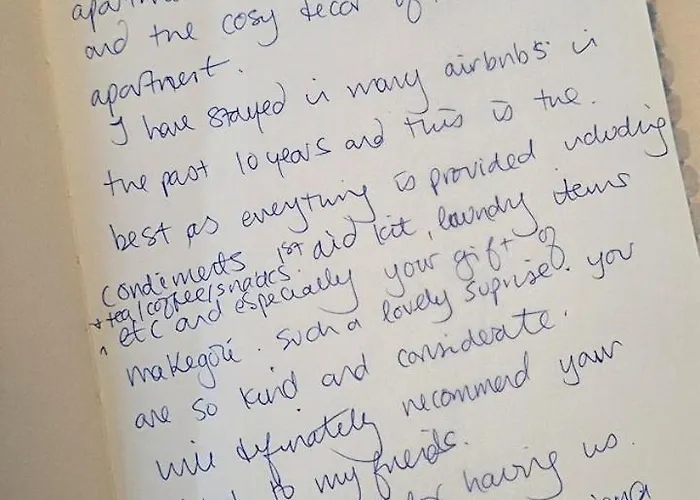 and the cosy decor of
apartment.
I have stayed in many airbnbs in
the past 10 years and this is the.
best as everything is provided including
condiments 1st aid kit, laundry items
+ tea/coffee/snacks.
^ etc and especially your gift of
makegeöli. such a lovely suprise. you
are so kind and considerate.
will definately recommend your
to my friends.
for having us.